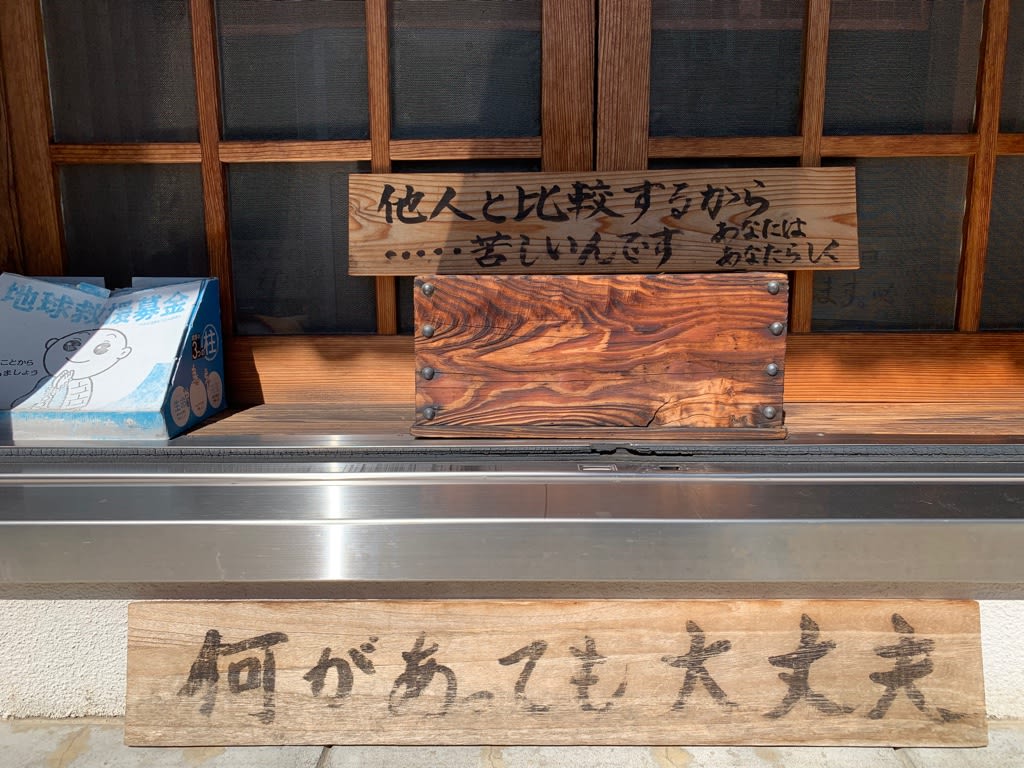 他人と比較するから
‥‥‥苦しいんです
あなたは
あなたらしく
地球救援募金
ことから
ましょう
何があっても大丈夫